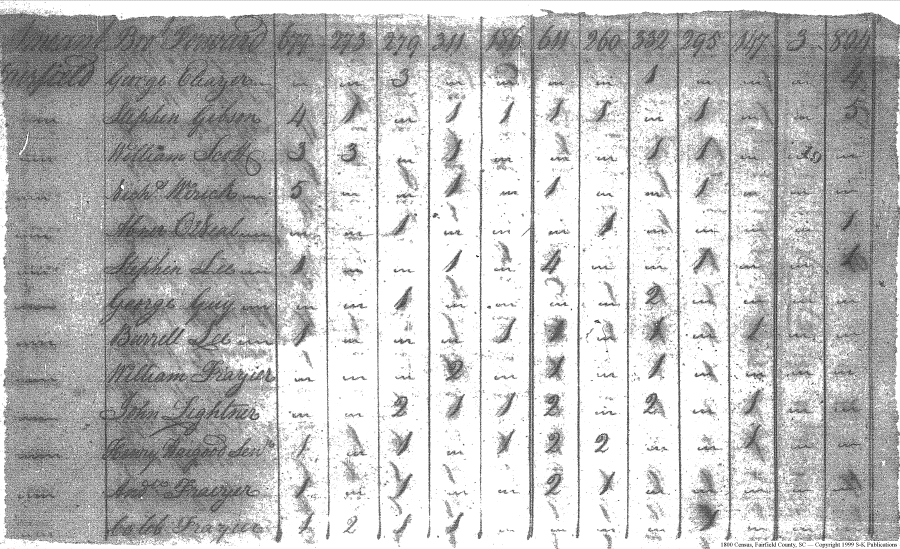 Bro.t Forward 677 273 279 311 186 611 260 332 295 147 3 804
Fairfield George m m 3 m m m m 1 m m m 4
m Stephen Gibson 4 1 m 1 1 1 1 m 1 m m 5
m William Scott 3 3 m 1 m m m 1 1 m m
m 5 m m 1 m 1 m m 1 m m m
m Abner m m 1 m m m 1 m m m m 1
m Stephen Lee 1 m m 1 m 4 m m 1 m m
m George Guy m m 1 m m m m 2 m m m m
m Burrell Lee 1 m m m 1 1 m 1 m 1 m m
m William Frazier m m m 2 m 1 m 1 m m m m
m John Lightner m m 2 1 1 2 m 2 m 1 m m
m Henry Sen.r 1 m 1 m 1 2 2 m m 1 m m
m And.w Frazier 1 m 1 m m 2 1 m m m m
Caleb Frazier 1 2 1 1 m m m m m m m
1800 Census, Fairfield County, SC — Copyright 1999 S-K Publications